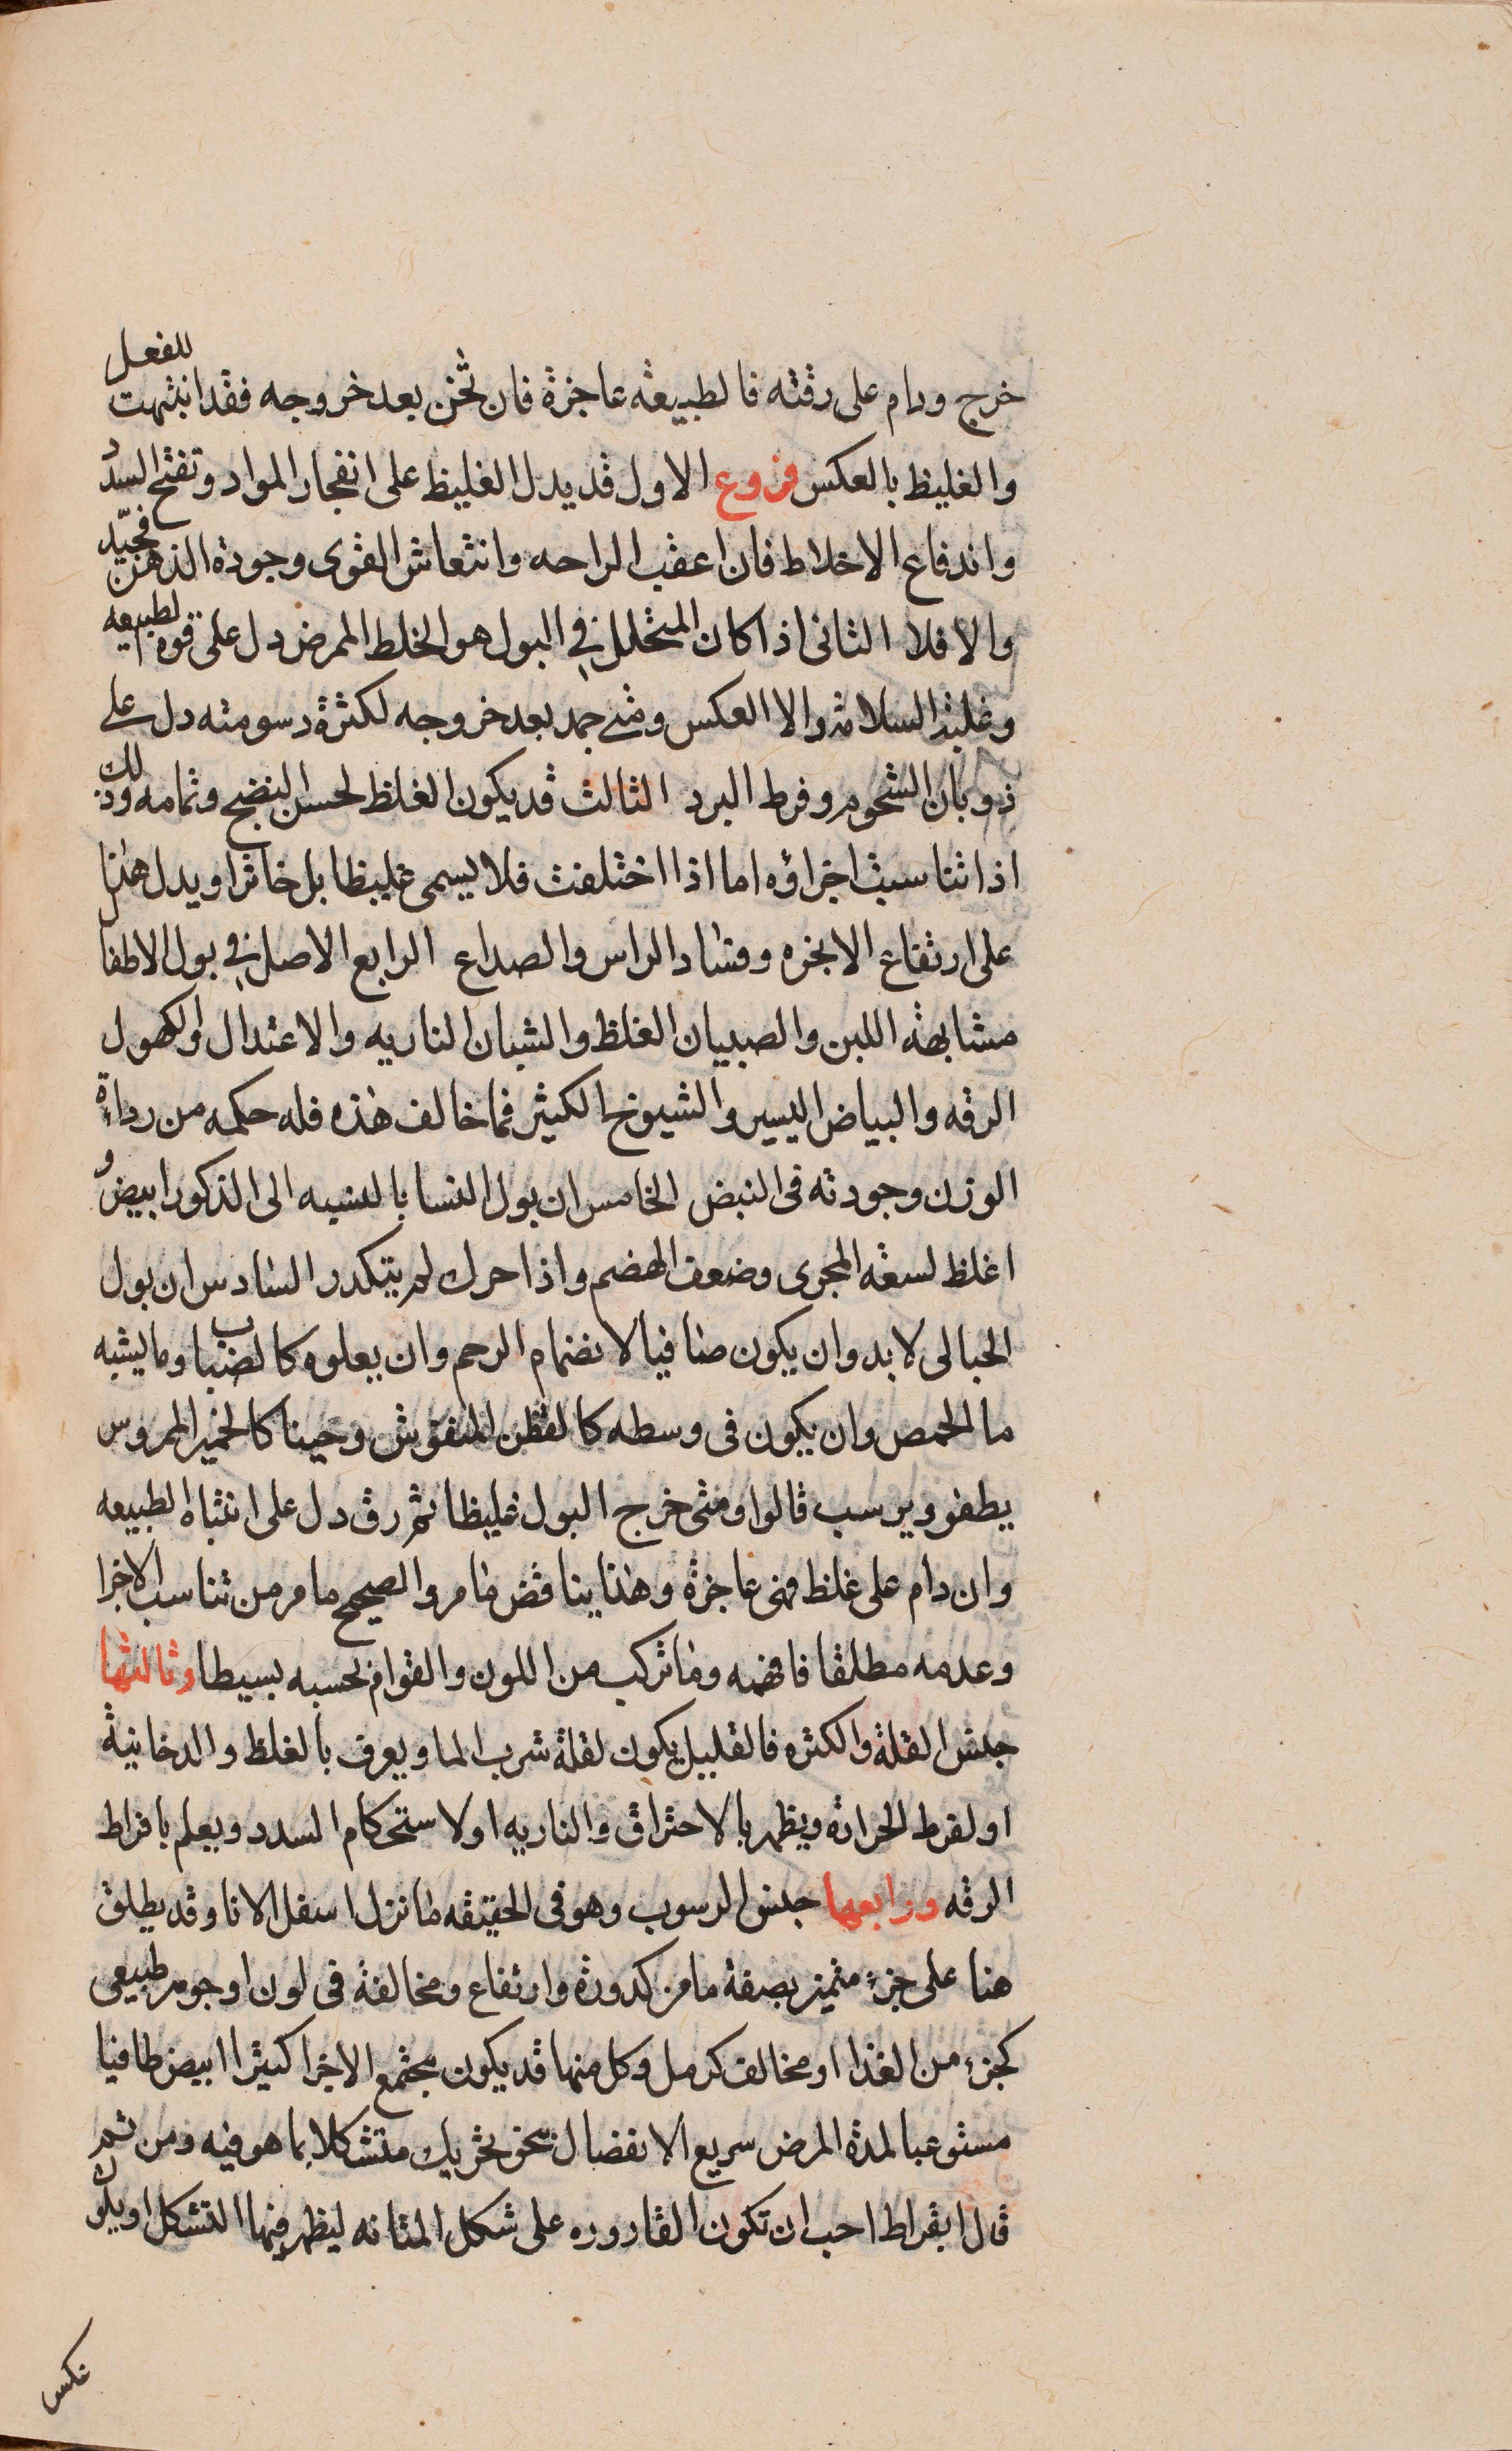 خرج ودام على رقته فالطبيعة عاجزة فان ثخن بعد خروجه فقد انتهت للفعل
والغليظ بالعكس فروع الاول قد يدل الغليظ على انفجار المواد وتفتح السدد
واندفاع الاخلاط فان اعقب الراحه وانتعاش القوى وجودة الذهن فجيّد
والا فلا الثانى اذا كان المتحلل في البول هو الخلط الممرض دل على قوة الطبيعه
وغلبة السلامة والا العكس ومتى جمد بعد خروجه لكثرة دسومته دل على
ذوبان الشحوم وفرط البرد الثالث قد يكون الغلظ لحسن النضج وتمامه وذلك
اذا تناسبت اجزاؤه اما اذا اختلفت فلا يسمى غليظا بل خاثرا ويدل هذا
على ارتفاع الابخره وفساد الراس والصداع الرابع الاصل في بول الاطفال
مشابهة اللبن والصبيان الغلظ والشبان الناريه والاعتدال والكهول
الرقه والبياض اليسير والشيوخ الكثير فما خالف هذه فله حكمه من رداءة
الوزن وجودته فى النبض الخامس ان بول النسا بالنسبه الى الذكور ابيض و
اغلظ لسعة المجرى وضعف الهضم واذا حرك لم يتكدر السادس ان بول
الحبالى لا بد وان يكون صافيا لانضمام الرحم وان يعلوه كالضباب وما يشبه
ما الحمص وان يكون فى وسطه كالقطن المنفوش وحينا كالخمير الممروس
يطفو ويرسب قالوا ومتى خرج البول غليظا ثم رق دل على انتباه الطبيعه
وان دام على غلظ فهى عاجزة وهذا يناقض ما مر والصحيح ما مر من تناسب الاجزا
وعدمه مطلقا فافهمه وما تركب من اللون والقوام بحسبه بسيطا وثالثها
جنس القلة والكثره فالقليل يكون لقلة شرب الما ويعرف بالغلظ والدخانية
او لفرط الحرارة ويظهر بالاحتراق والناريه او لاستحكام السدد ويعلم بافراط
الرقه ورابعها جنس الرسوب وهو فى الحقيقه ما نزل اسفل الانا وقد يطلق
هنا على جزء متميز بصفة ما من كدورة وارتفاع ومخالفة فى لون او جوهر طبيعى
كجزء من الغذا او مخالف كرمل وكل منها قد يكون مجتمع الاجزا كثيرا ابيض طافيا
مستوعبا لمدة المرض سريع الانفصال بنحو تحريك متشكلا بما هو فيه ومن ثم
قال ابقراط احب ان تكون القاروره على شكل المثانه ليظهر فيها التشكل او يكون
عكس